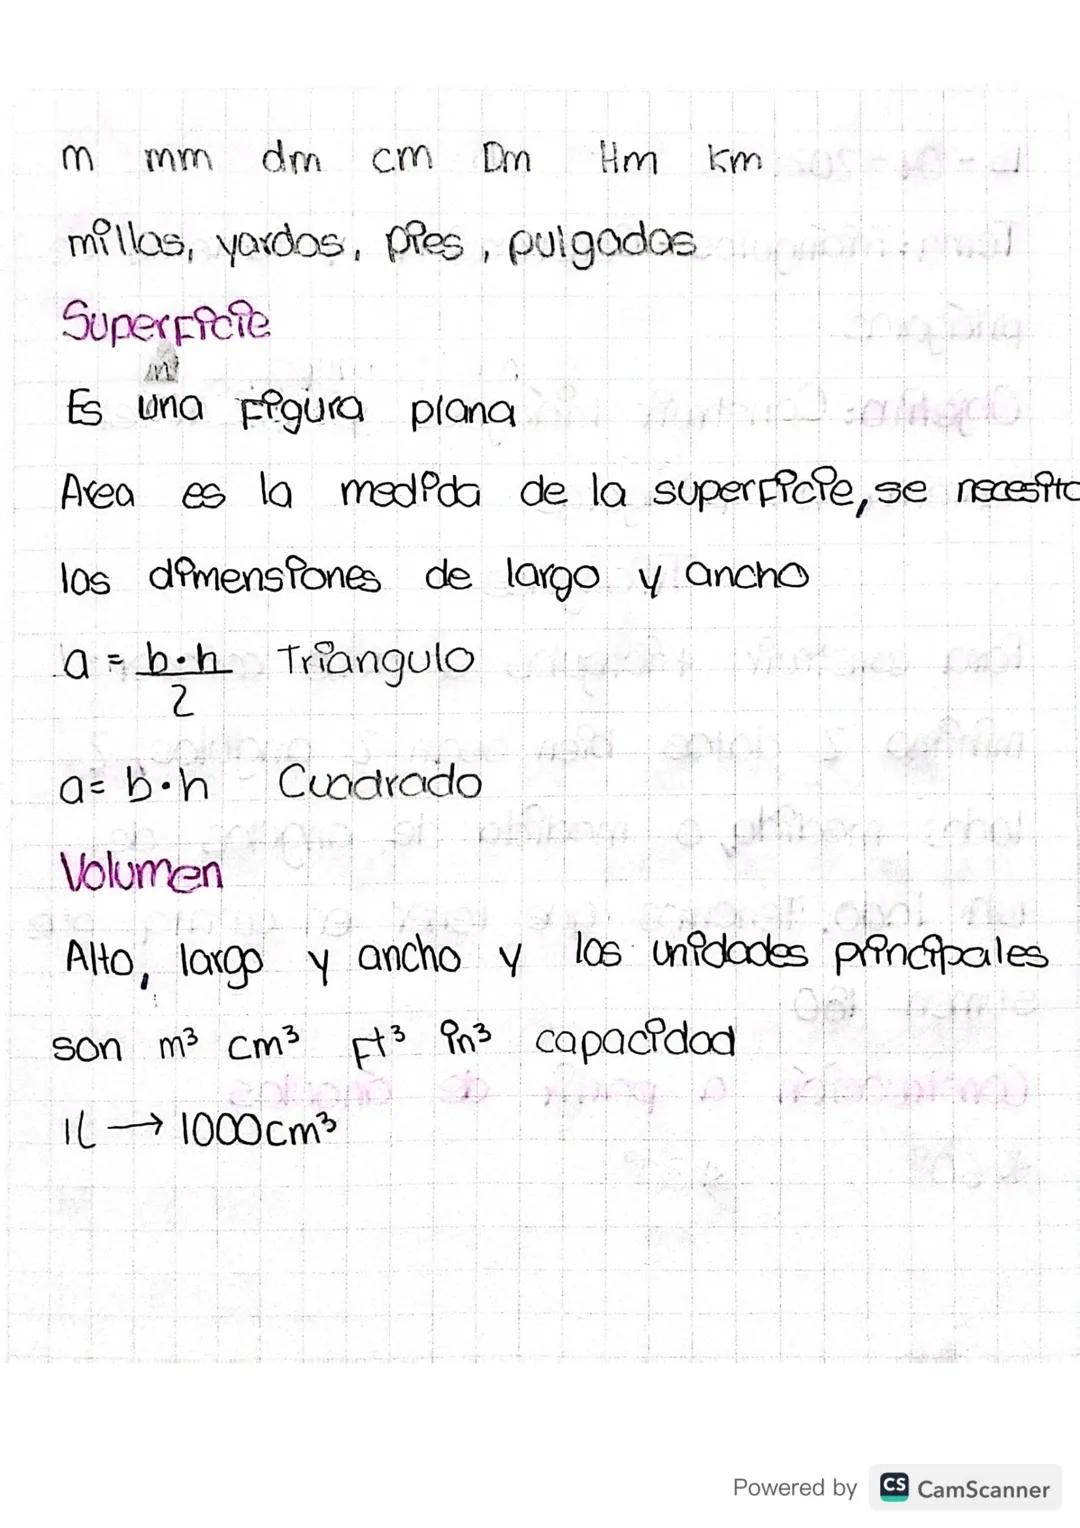 m mm dm cm Dm Hm Km
millas, yardas, pies, pulgadas
Superficie
m²
Es una figura plana
Area es la medida de la superficie, se necesita
las dimensiones de largo y ancho
a = b·h/2 Triangulo
a = b·h Cuadrado
Volumen
Alto, largo y ancho y las unidades principales
son m³ cm³ Ft³ in³ capacidad
1L → 1000cm³
Powered by CS CamScanner